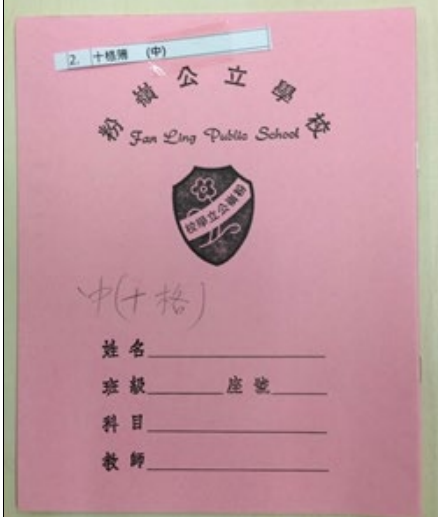 2. 十格簿 (中)
粉嶺公立學校
Fan Ling Public School
粉嶺公立學校
中(十格)
姓名
班級 座號
科目
教師